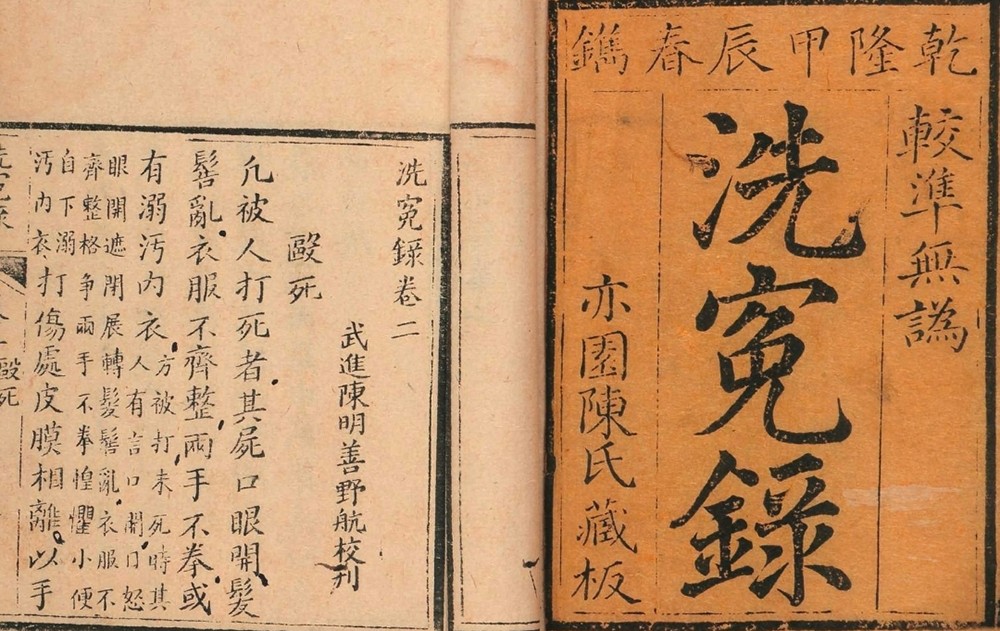 乾隆甲辰春鐫
較準無譌
洗冤錄
亦園陳氏藏板
洗冤錄卷二
武進陳明善野航校刋
毆死
凡被人打死者其屍口眼開髮
髻亂衣服不齊整兩手不拳或
有溺汚內衣方被打未死時其人有言口開口怒
眼開遮閉展轉髮髻亂衣服不
齊整格争兩手不拳惶懼小便
自下溺汚內衣打傷處皮膜相離以手
毆死